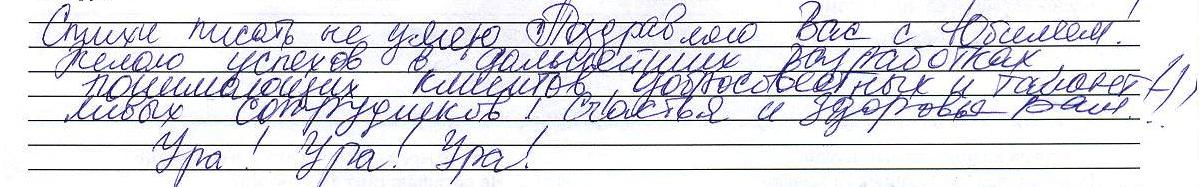 Стихи писать не умею Поздравляю Вас с Юбилеем!
Желаю успехов в дальнейших разработках
понимающих клиентов, добросовестных и талант-
ливых сотрудников! Счастья и здоровья Вам!
Ура! Ура! Ура!